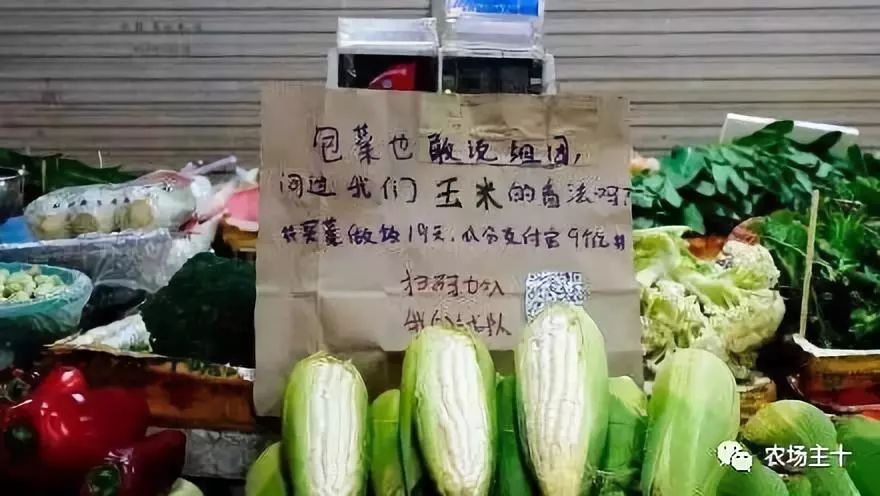 包菜也敢说组团,
问过我们玉米的看法吗?
#买菜做饭19天,瓜分支付宝9个亿#
扫码加入
我们战队
农场主十